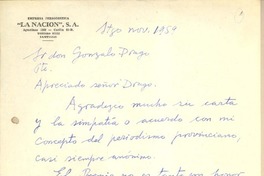 EMPRESA PERIODISTICA
"LA NACION", S.A.
SANTIAGO
Stgo nov. 1959
Sr don Gonzalo Drago
Pte.
Apreciado señor Drago.
Agradezco mucho su carta
y la simpatía o acuerdo con mi
concepto del periodismo provinciano,
casi siempre anónimo.
El Premio no es tanto un honor